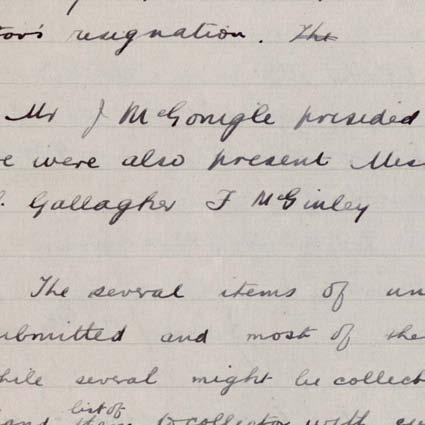 tor's resignation. The
Mr J McGonigle presided
re were also present Mes
Gallagher F McGinley
The several items of un
ubmitted and most of the
hile several might be collect
list of
and items to collector with